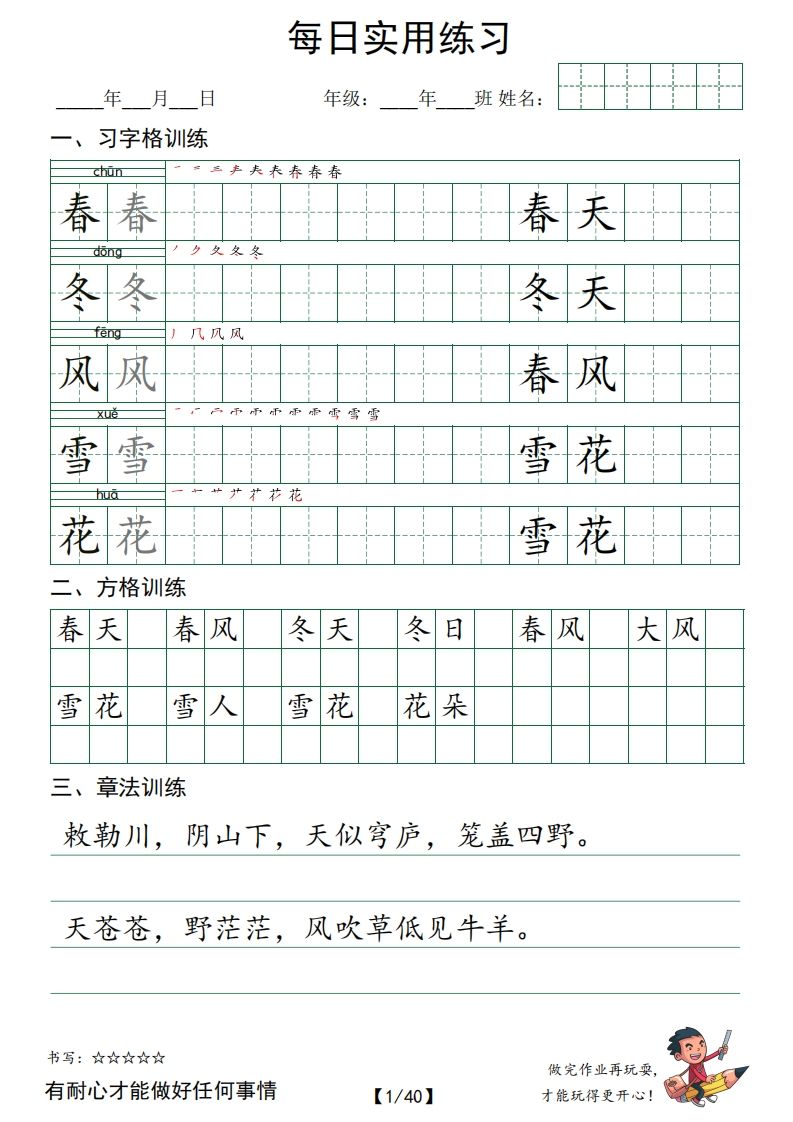 每日实用练习
_____年___月___日 年级：____年____班 姓名：
一、习字格训练
chūn
春 春 春 天
dōng
冬 冬 冬 天
fēng
风 风 春 风
xuě
雪 雪 雪 花
huā
花 花 雪 花
二、方格训练
春天 春风 冬天 冬日 春风 大风
雪花 雪人 雪花 花朵
三、章法训练
敕勒川，阴山下，天似穹庐，笼盖四野。
天苍苍，野茫茫，风吹草低见牛羊。
书写：☆☆☆☆☆
有耐心才能做好任何事情
【1/40】
做完作业再玩耍，
才能玩得更开心！